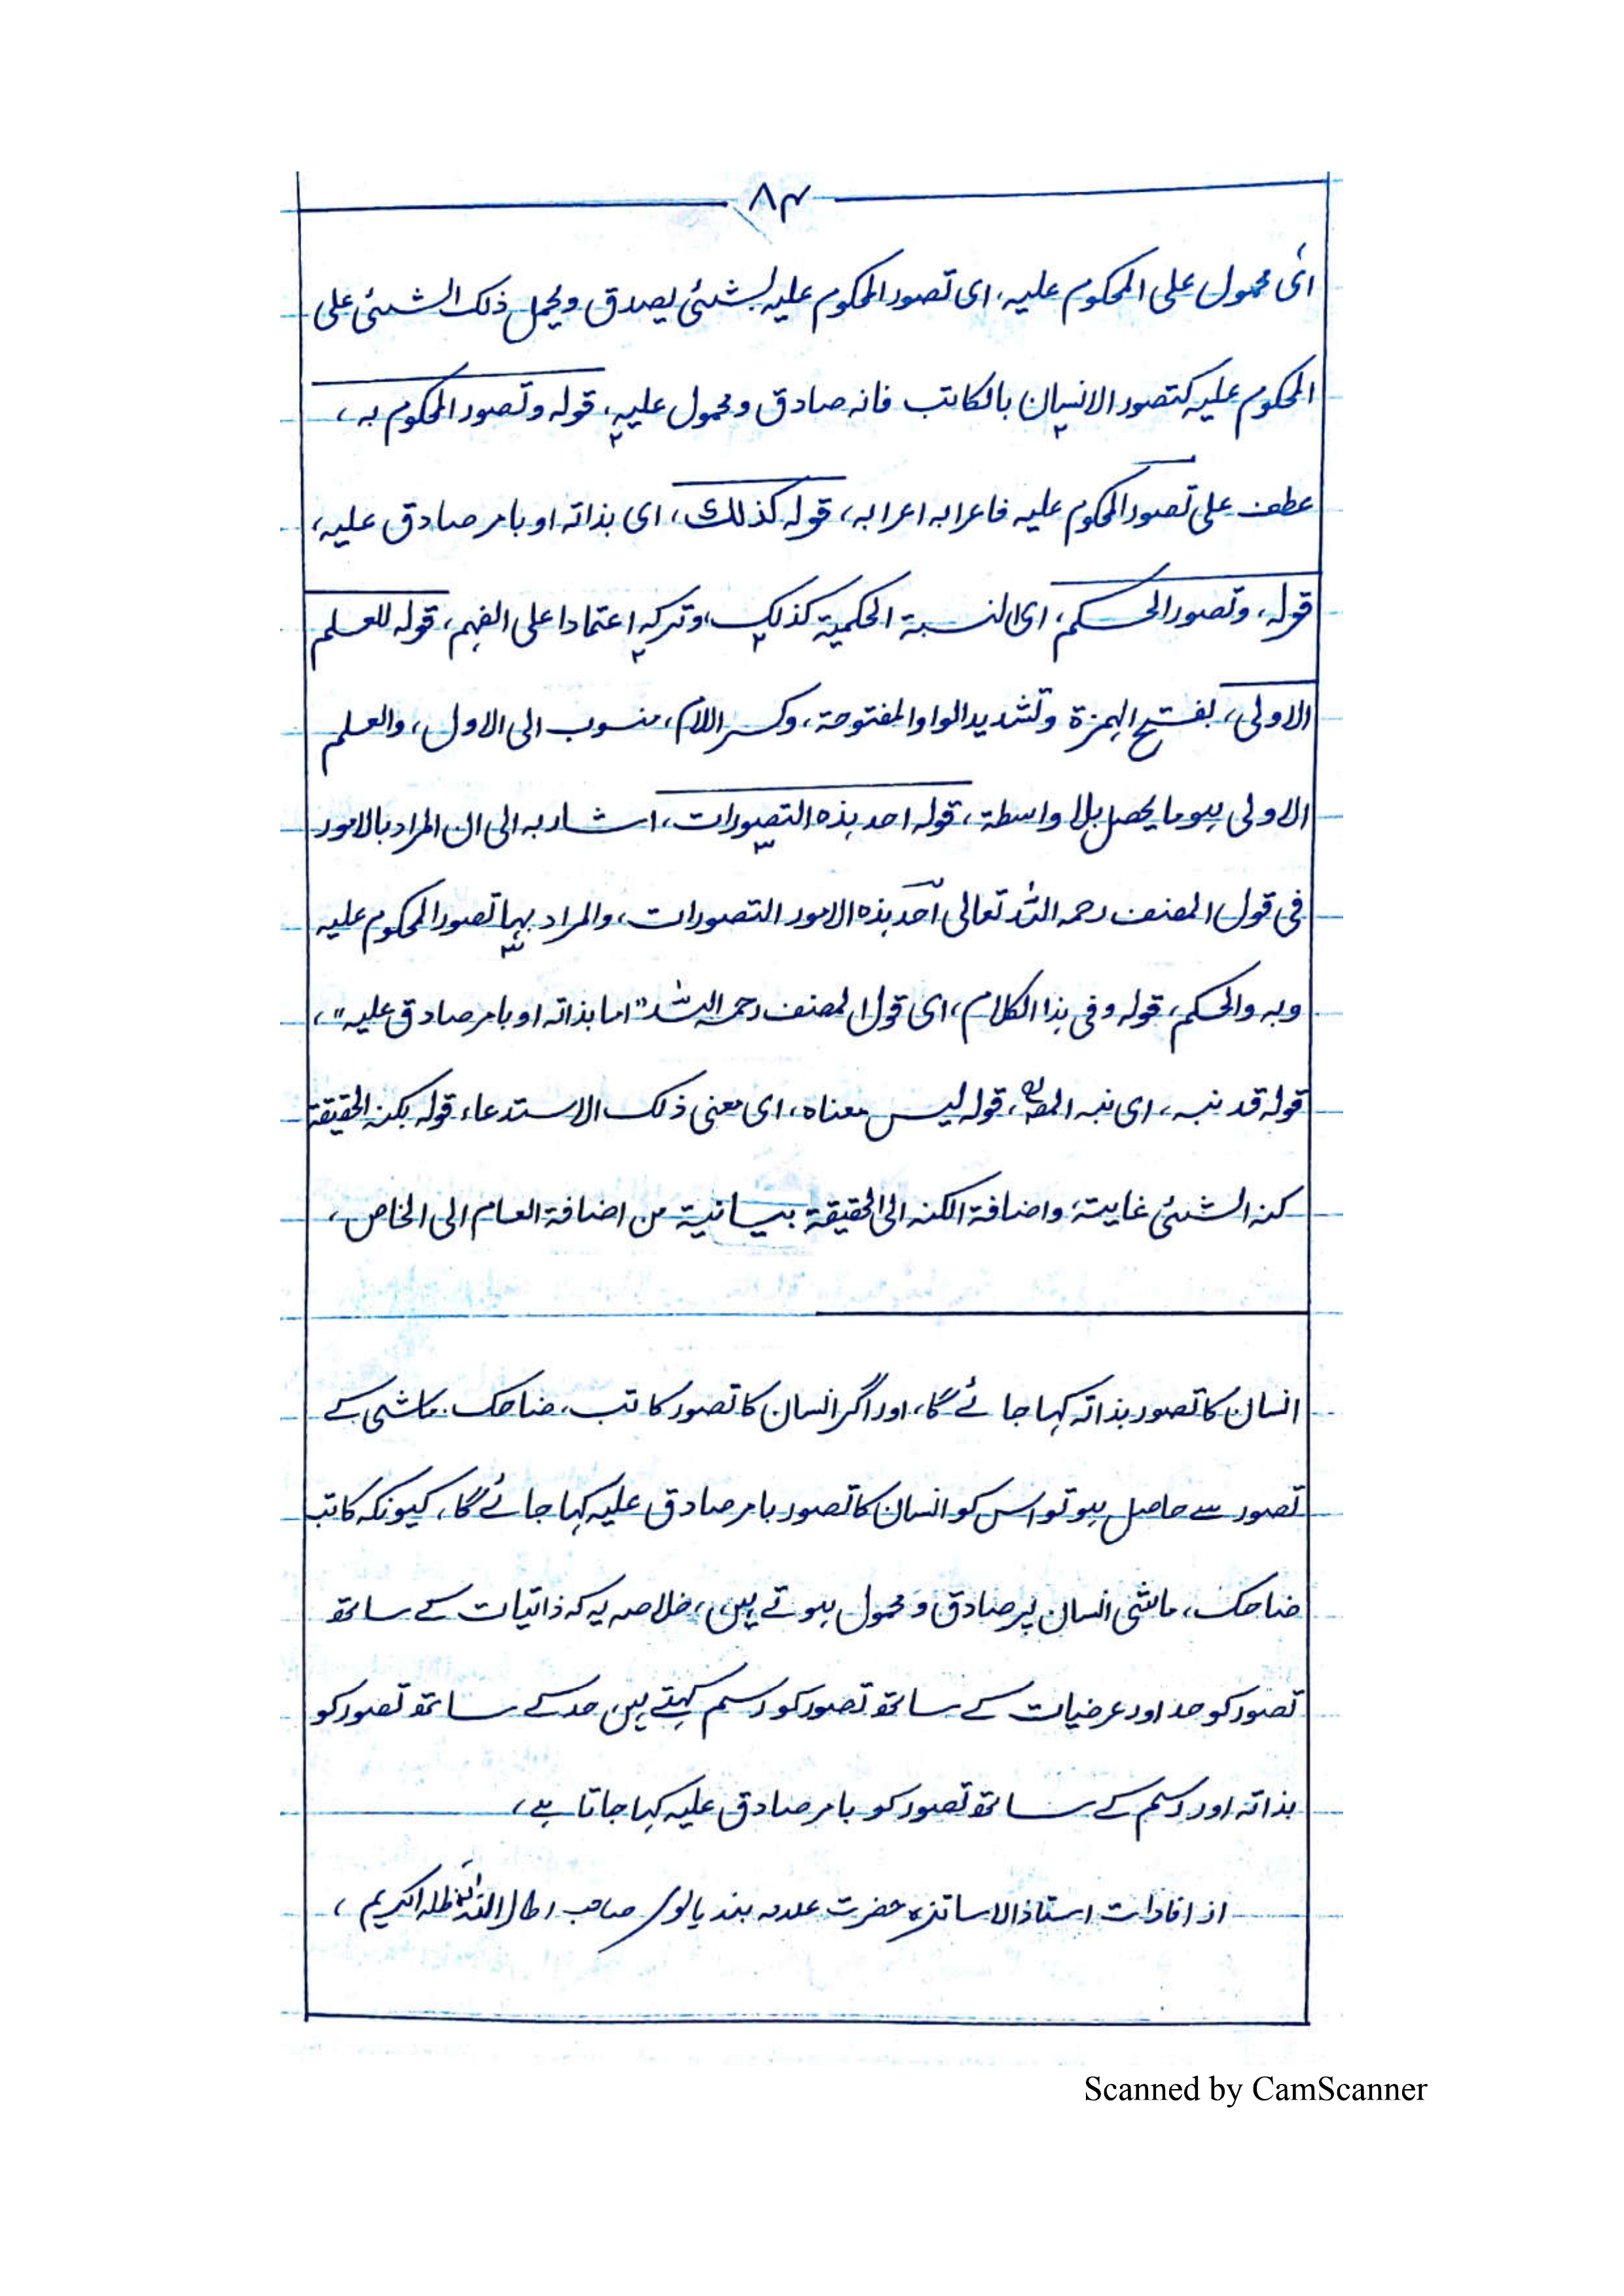 ۸۴
ای محمول علی المحکوم علیہ، ای تصور المحکوم علیہ بشئی یصدق ویحمل ذلک الشئی علی
المحکوم علیہ کتصور الانسان بالکاتب فانہ صادق ومحمول علیہ، قولہ وتصور المحکوم بہ،
عطف علی تصور المحکوم علیہ فاعرابہ اعرابہ، قولہ کذلک، ای بذاتہ او بامر صادق علیہ،
قولہ، وتصور الحکم، ای النسبۃ الحکمیۃ کذلک، وترکہ اعتمادا علی الفہم، قولہ للعلم
الاولی، بفتح الہمزۃ وتشدید الواو المفتوحۃ، وکسر اللام، منسوب الی الاول، والعلم
الاولی ہو ما یحصل بلا واسطۃ، قولہ احد ہذہ التصورات، اشار بہ الی ان المراد بالامور
فی قول المصنف رحمہ اللہ تعالی احد ہذہ الامور التصورات، والمراد بہا تصور المحکوم علیہ
وبہ والحکم، قولہ وفی ہذا الکلام، ای قول المصنف رحمہ اللہ "اما بذاتہ او بامر صادق علیہ"،
قولہ قد نبہ، ای نبہ المص، قولہ لیس معناہ، ای معنی ذلک الاستدعاء، قولہ بکنہ الحقیقۃ
کنہ الشئی غایتہ، واضافۃ الکنہ الی الحقیقۃ بیانیۃ من اضافۃ العام الی الخاص،
انسان کا تصور بذاتہ کہا جائے گا، اور اگر انسان کا تصور کاتب، ضاحک، ماشی کے
تصور سے حاصل ہو تو اس کو انسان کا تصور بامر صادق علیہ کہا جائے گا، کیونکہ کاتب
ضاحک، ماشی انسان پر صادق و محمول ہوتے ہیں، خلاصہ یہ کہ ذاتیات کے ساتھ
تصور کو حد اور عرضیات کے ساتھ تصور کو رسم کہتے ہیں حد کے ساتھ تصور کو
بذاتہ اور رسم کے ساتھ تصور کو بامر صادق علیہ کہا جاتا ہے،
از افادات استاذ الاساتذہ حضرت علامہ بندیالوی صاحب اطال اللہ ظلہ الکریم،
Scanned by CamScanner